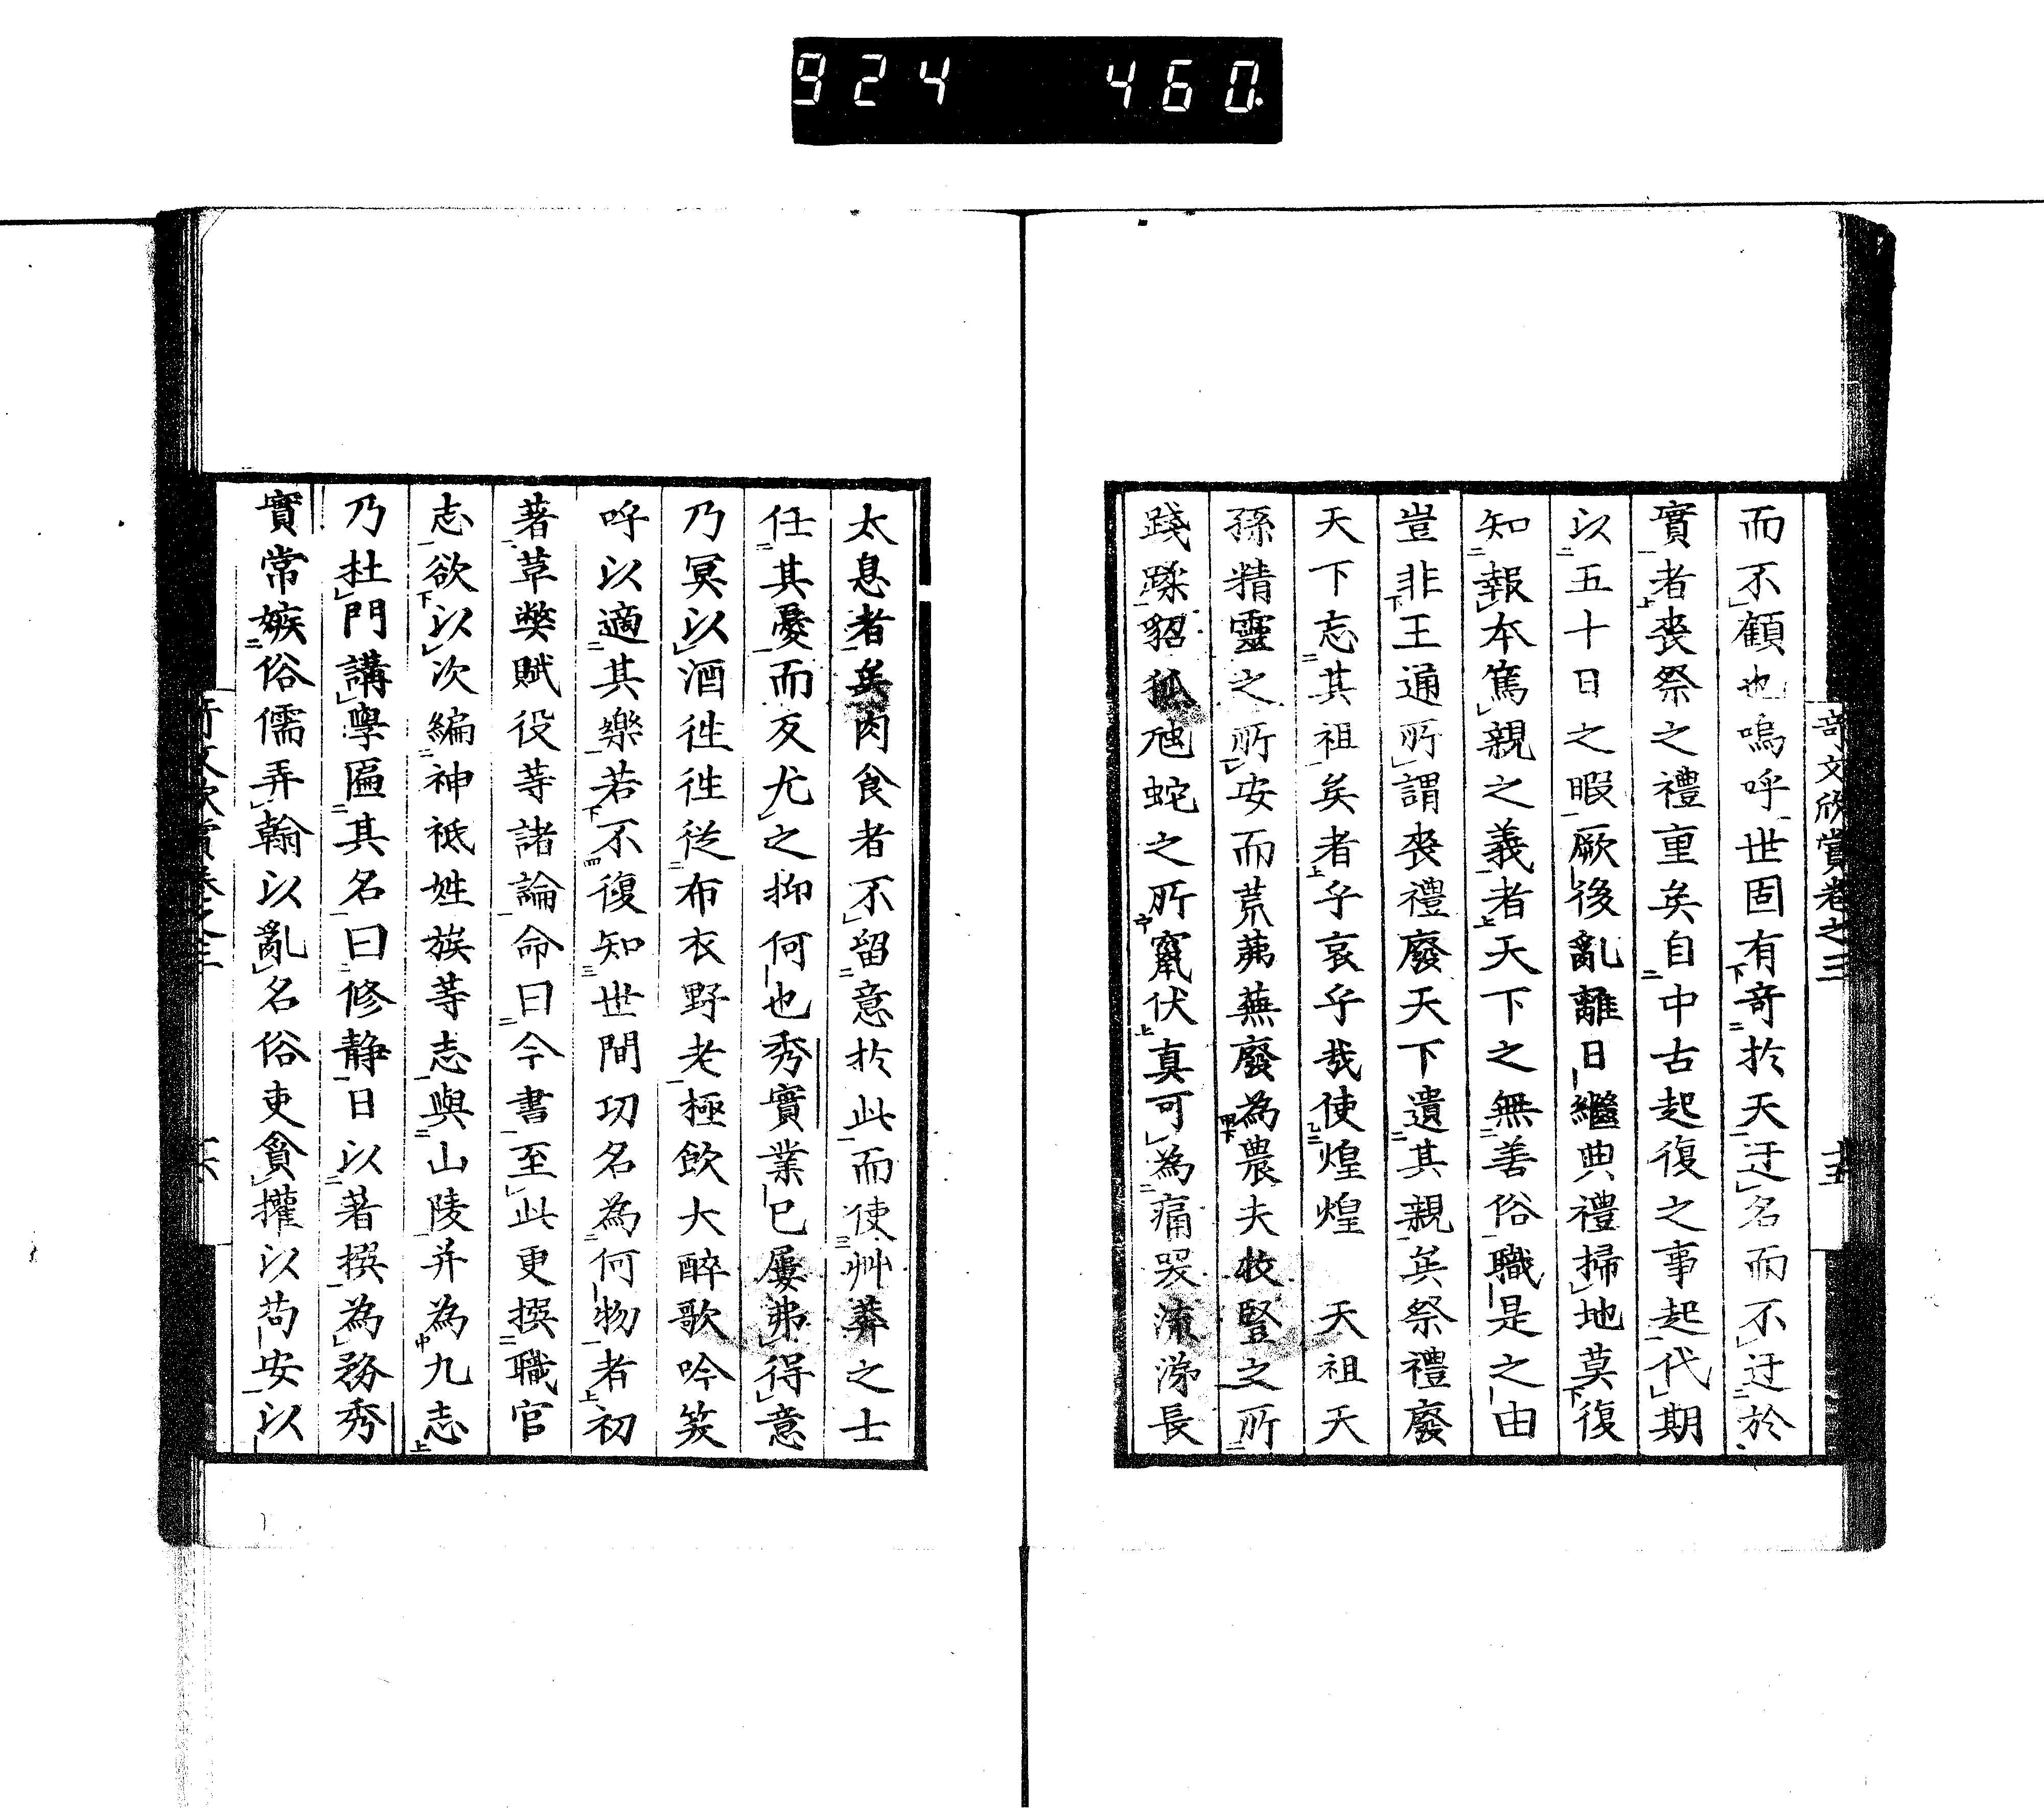 924 460.
奇文欣賞卷之三 十五
而不顧也嗚呼世固有奇於天迂名而不迂於
實者喪祭之禮重矣自中古起復之事起代期
以五十日之暇厥後亂離日繼典禮掃地莫復
知報本篤親之義者天下之無善俗職是之由
豈非王通所謂喪禮廢天下遺其親矣祭禮廢
天下忘其祖矣者乎哀乎哉使煌煌 天祖天
孫精靈之所安而荒茀蕪廢為農夫牧豎之所
踐蹂貂狐虺蛇之所竄伏真可為痛哭流涕長
太息者矣肉食者不留意於此而使艸莽之士
任其憂而反尤之抑何也秀實業已屢弗得意
乃冥以酒徃徃從布衣野老極飲大醉歌吟笑
呼以適其樂若不復知世間功名為何物者初
著革弊賦役等諸論命曰今書至此更撰職官
志欲以次編神祇姓族等志與山陵并為九志
乃杜門講學匾其名曰修静日以著撰為務秀
實常嫉俗儒弄翰以亂名俗吏貪攉以苟安以
奇文欣賞卷之三 十六